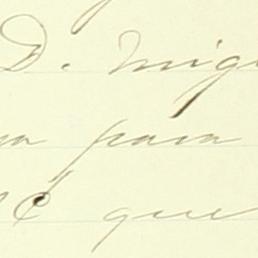 D. Migu
para
que